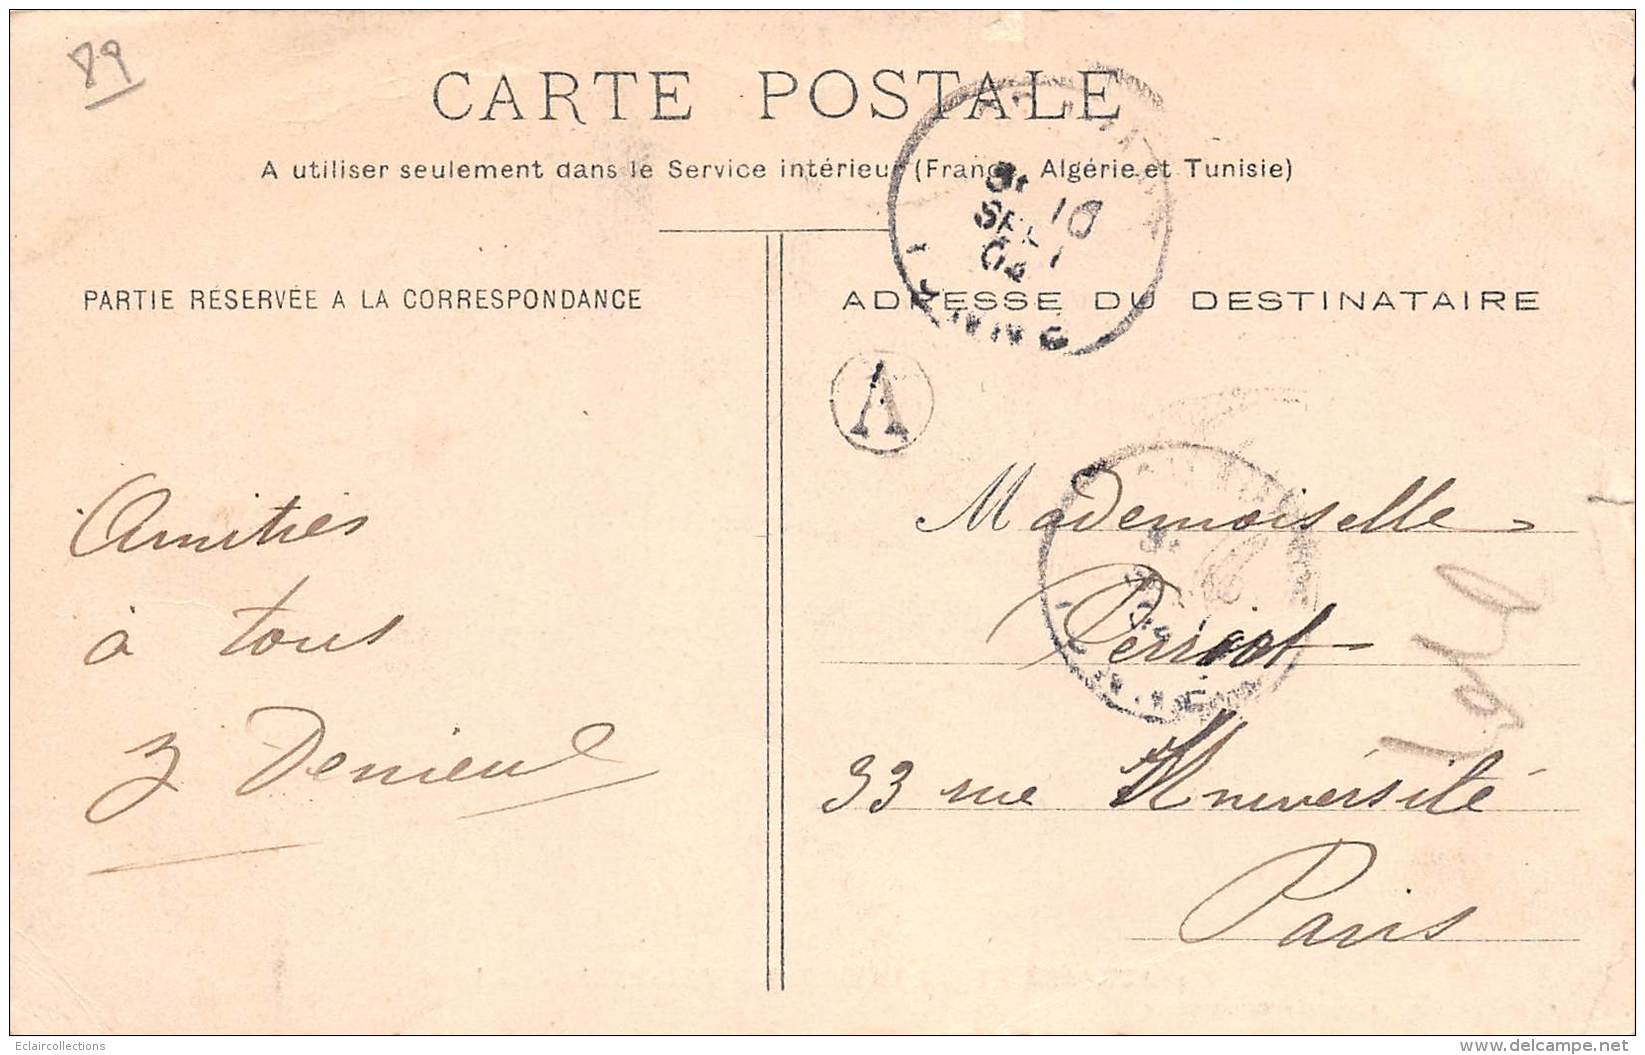 89
CARTE POSTALE
A utiliser seulement dans le Service intérieur (France, Algérie et Tunisie)
PARTIE RÉSERVÉE A LA CORRESPONDANCE
ADRESSE DU DESTINATAIRE
A
Amitiés
à tous
Mademoiselle
33 rue Université
Paris
Eclaircollections
www.delcampe.net